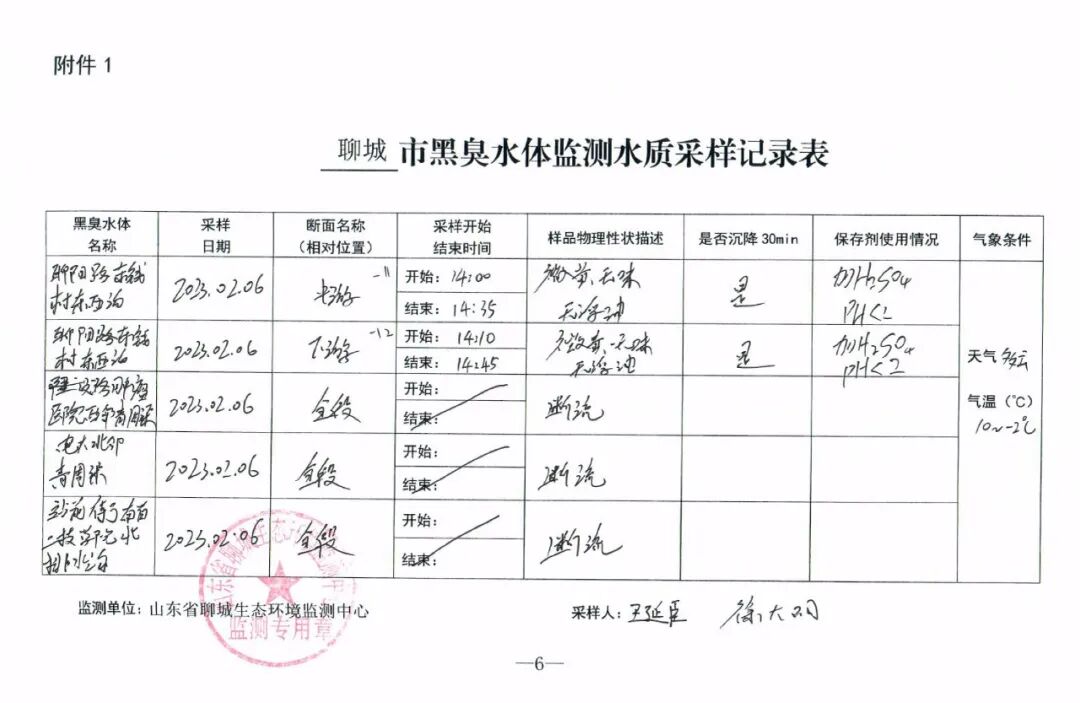 附件 1
聊城 市黑臭水体监测水质采样记录表
黑臭水体
名称
采样
日期
断面名称
(相对位置)
采样开始
结束时间
样品物理性状描述
是否沉降 30min
保存剂使用情况
气象条件
聊阳路东钱
村东西沟
2023.02.06
上游
-11
开始: 14:00
结束: 14:35
微黄、无味
无浮油
是
加H₂SO₄
PH<2
聊阳路东钱
村东西沟
2023.02.06
下游
-12
开始: 14:10
结束: 14:45
微黄、无味
无浮油
是
加H₂SO₄
PH<2
天气 多云
气温 (℃)
10~-2℃
医院
2023.02.06
全段
开始:
结束:
断流
电大北邻
青周渠
2023.02.06
全段
开始:
结束:
断流
站前街南首
2023.02.06
全段
开始:
结束:
断流
监测单位: 山东省聊城生态环境监测中心
采样人: 王延臣 徐大明
山东省聊城生态环境监测中心
监测专用章
—6—